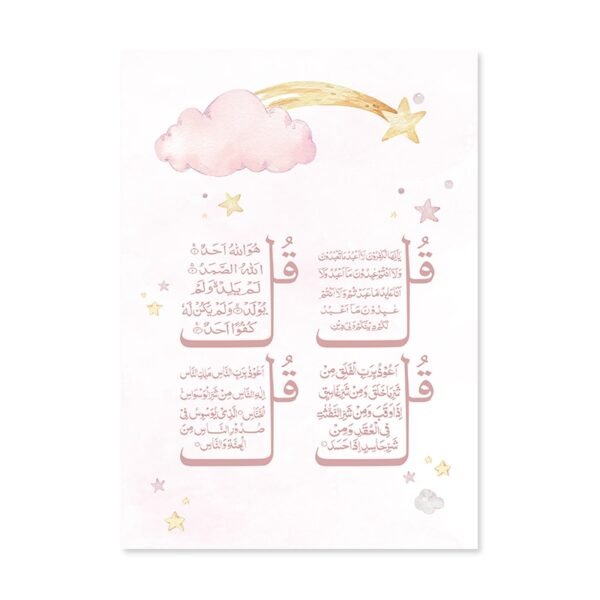 قُل
يٰٓأَيُّهَا الْكٰفِرُونَ لَآ أَعْبُدُ مَا تَعْبُدُونَ
وَلَآ أَنْتُمْ عٰبِدُونَ مَآ أَعْبُدُ وَلَآ
أَنَا عَابِدٌ مَا عَبَدْتُمْ وَلَآ أَنْتُمْ
عٰبِدُونَ مَآ أَعْبُدُ
لَكُمْ دِينُكُمْ وَلِيَ دِينِ
قُل
هُوَ اللهُ أَحَدٌ ۝١
اَللهُ الصَّمَدُ ۝٢
لَمْ يَلِدْ ۝ وَلَمْ
يُولَدْ ۝٣ وَلَمْ يَكُنْ لَهُ
كُفُوًا أَحَدٌ ۝٤
قُل
أَعُوذُ بِرَبِّ الْفَلَقِ مِنْ
شَرِّ مَا خَلَقَ وَمِنْ شَرِّ غَاسِقٍ
إِذَا وَقَبَ وَمِنْ شَرِّ النَّفّٰثٰتِ
فِي الْعُقَدِ وَمِنْ
شَرِّ حَاسِدٍ إِذَا حَسَدَ
قُل
أَعُوذُ بِرَبِّ النَّاسِ مَلِكِ النَّاسِ
إِلٰهِ النَّاسِ مِنْ شَرِّ الْوَسْوَاسِ
الْخَنَّاسِ الَّذِي يُوَسْوِسُ فِي
صُدُورِ النَّاسِ مِنَ
الْجِنَّةِ وَالنَّاسِ